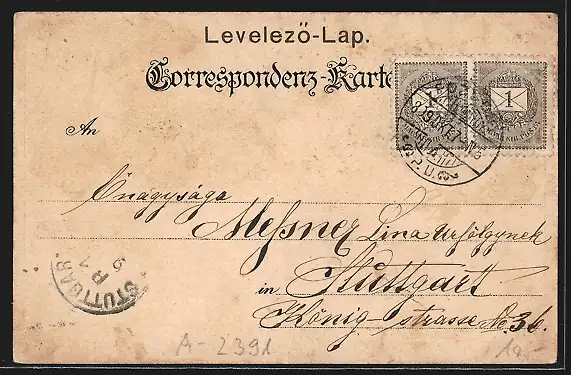 Levelező-Lap.
Correspondenz-Karte
1 1
An
Őnagysága
Meßner Lina Urfölgynek
in Stuttgart
König-strasse No 36.
STUTTGAR
A-2391